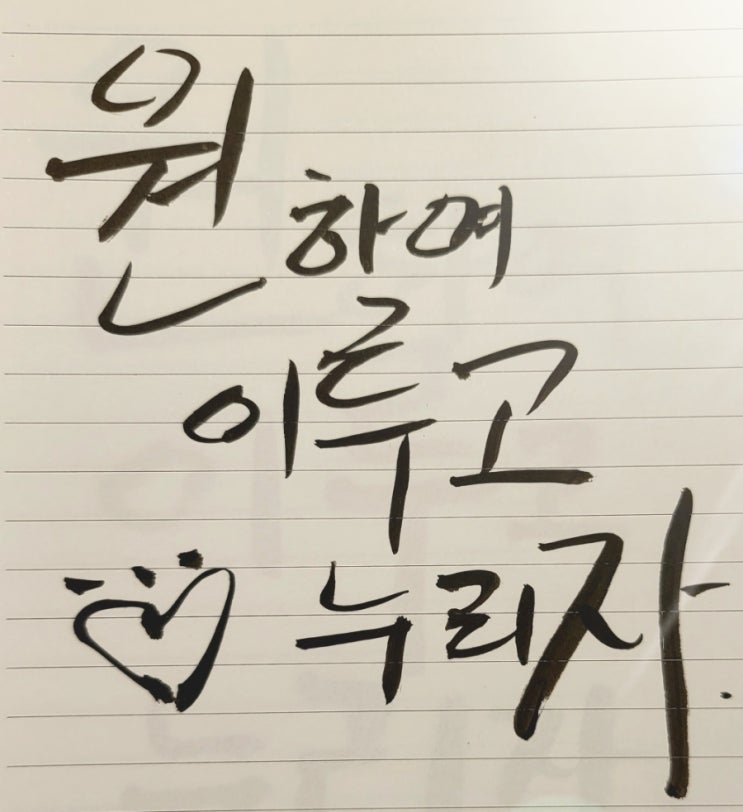 원하여
이루고
누리자.